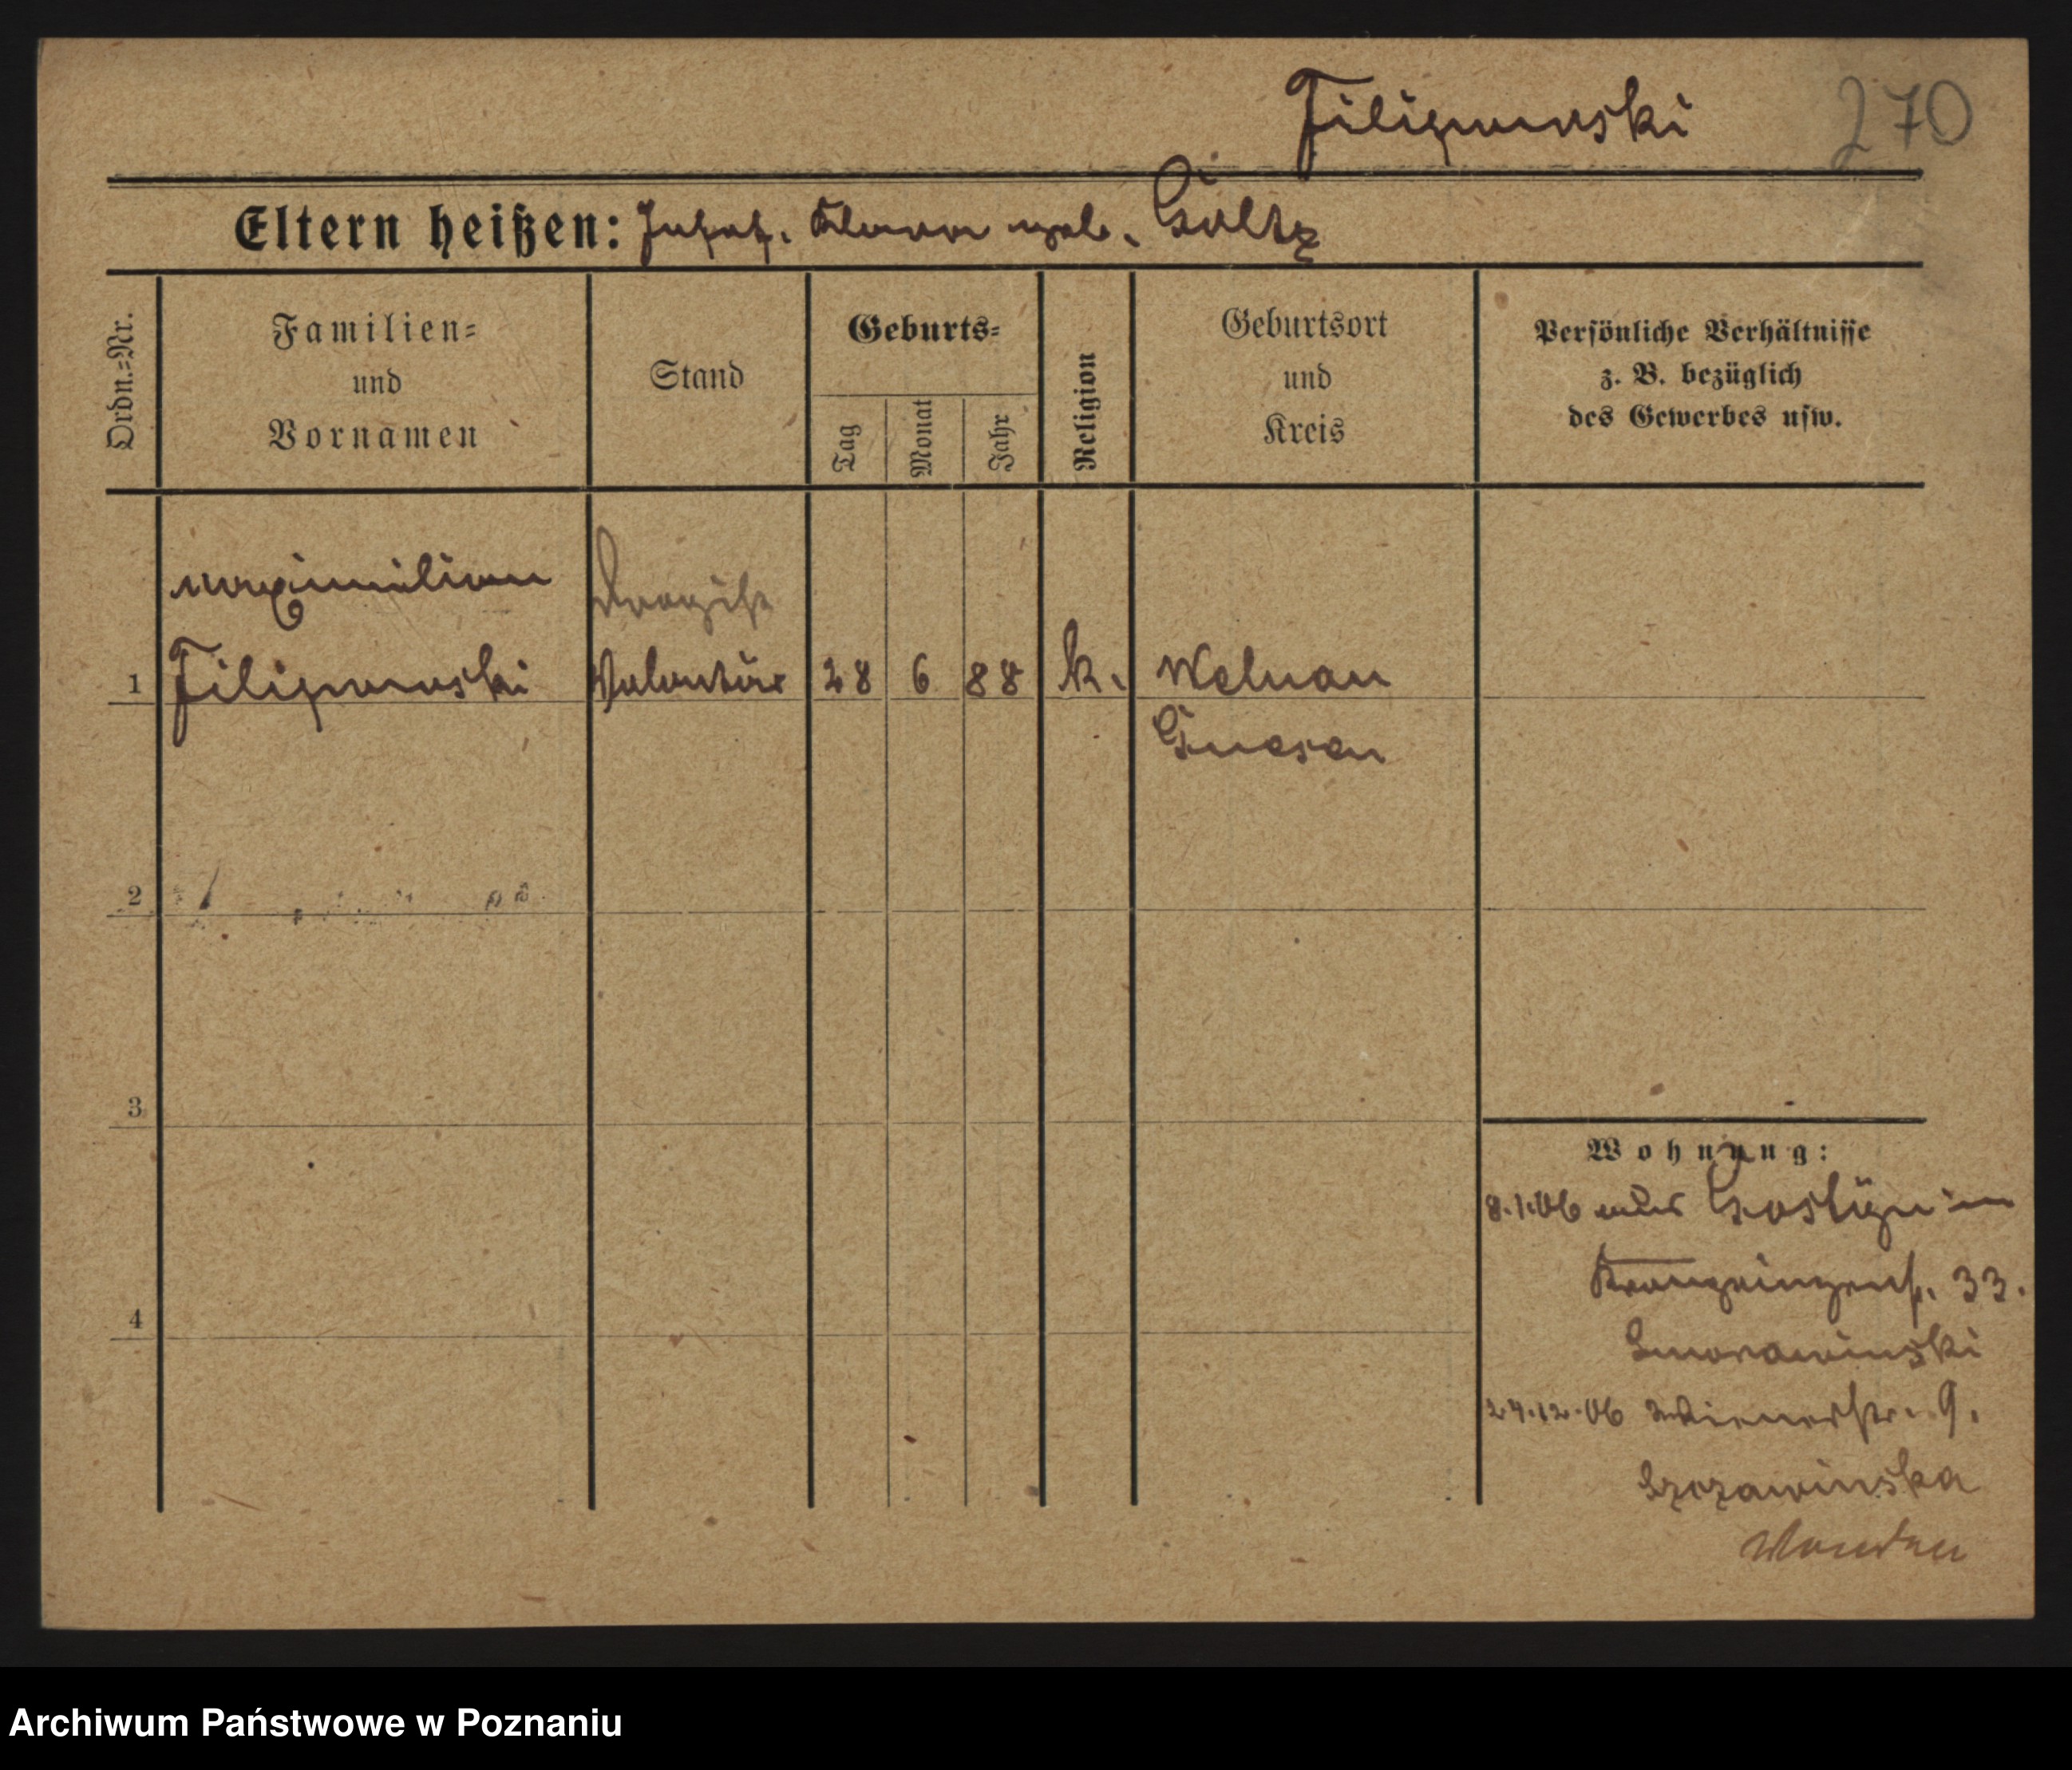 Filipowski 270
Eltern heißen: Josef. Klara geb. Goltz
Ordn.-Nr.
Familien-
und
Vornamen
Stand
Geburts-
Tag
Monat
Jahr
Religion
Geburtsort
und
Kreis
Persönliche Verhältnisse
z. B. bezüglich
des Gewerbes usw.
Maximilian Drogist
1 Filipowski Volontär 28 6 88 k. Welnau
Gnesen
2
3
4
Wohnung:
8.1.06 aus Gostÿn in
Kronprinzenst. 33.
Smorawinski
24.12.06 Wienerstr. 9.
Szczawinska